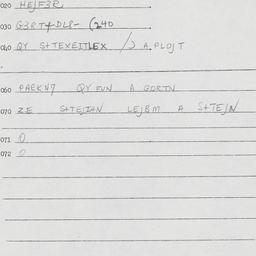 020 HEJF3R
030 G3RT4DL8- (240
040 QY S+TEXEITLEX /) A. PLOJT
060 PAEKN7 QY FUN A GORTN
070 ZE S+TEJI+N LEJBM A S+TEJN
071 0
072 0